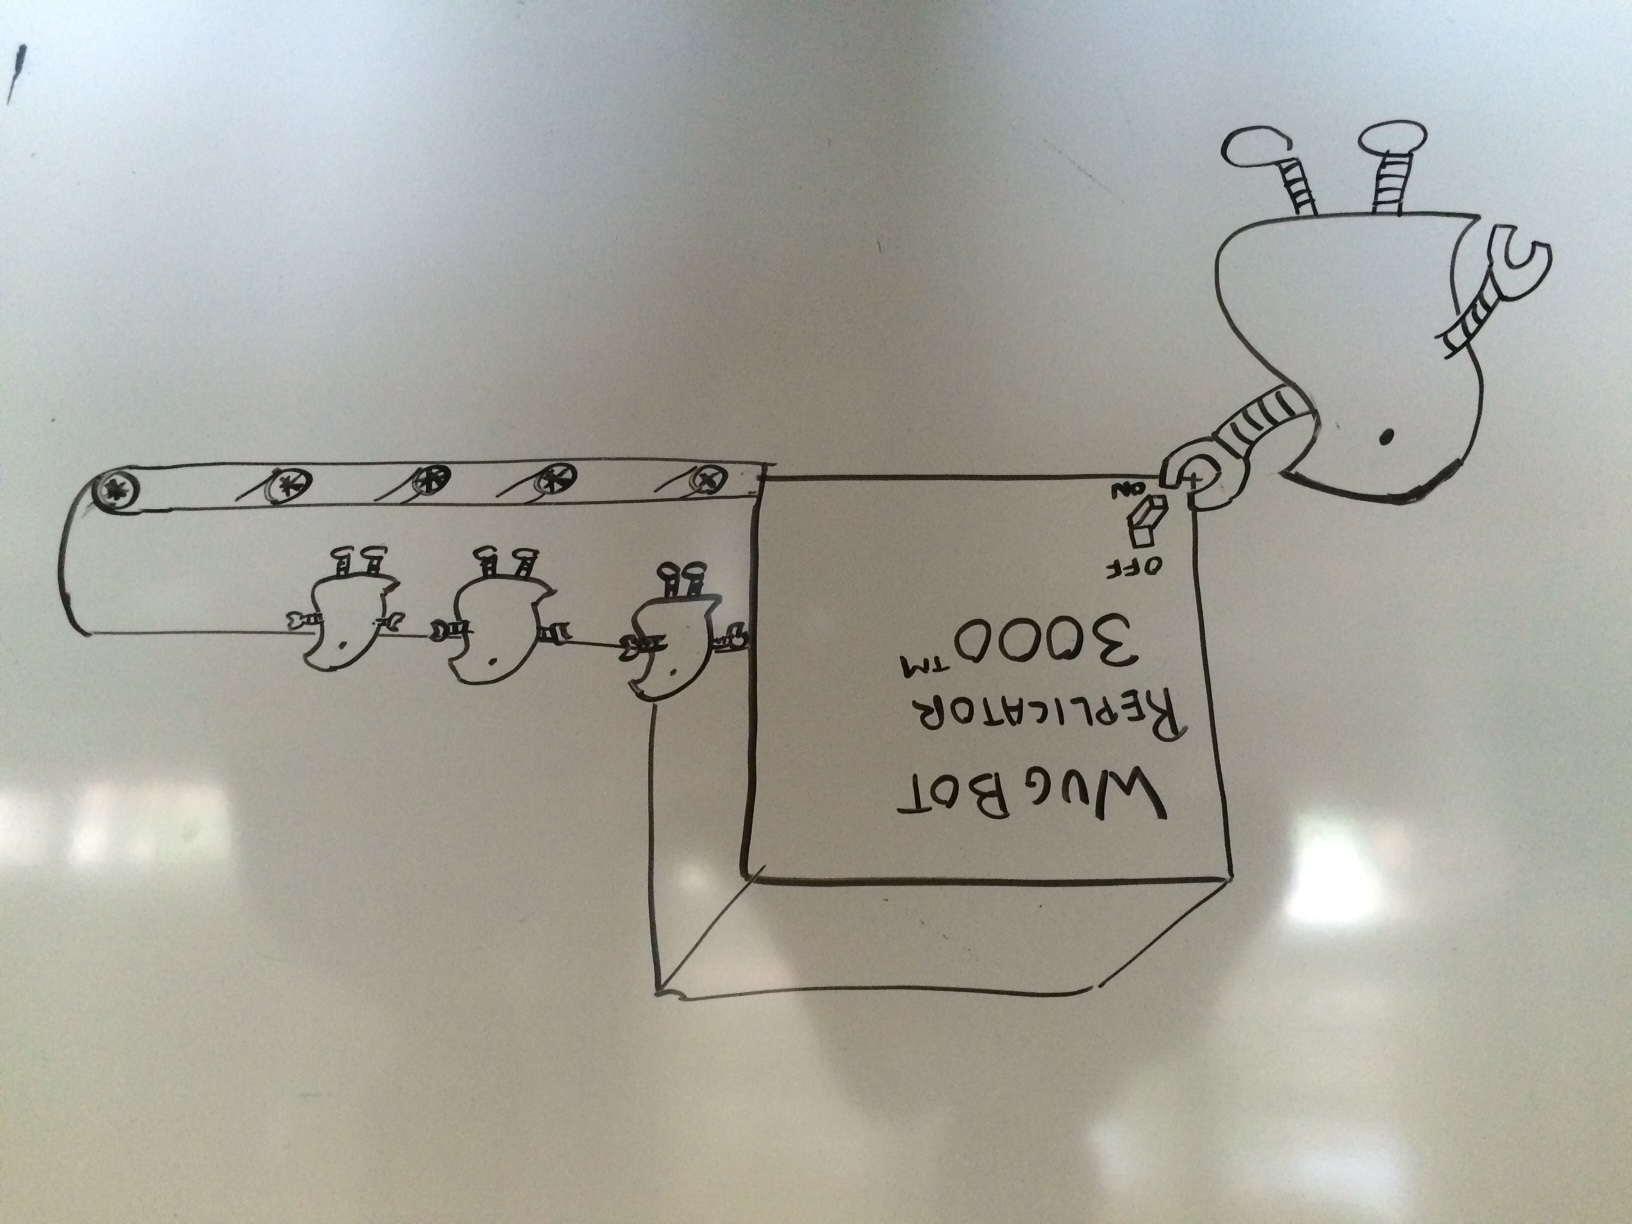 WUG BOT
REPLICATOR
3000™
OFF
ON